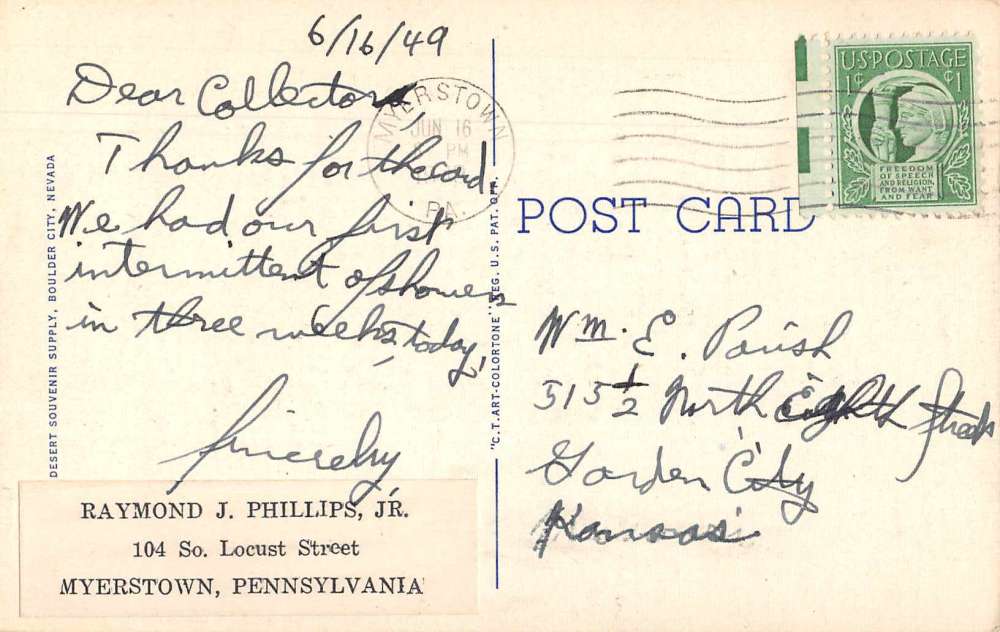 6/16/49
Dear Collector,
Thanks for the card.
We had our first
intermittent of showers
in three weeks, today,
Sincerely,
RAYMOND J. PHILLIPS, JR.
104 So. Locust Street
MYERSTOWN, PENNSYLVANIA
DESERT SOUVENIR SUPPLY, BOULDER CITY, NEVADA
"C.T. ART-COLORTONE" REG. U.S. PAT. OFF.
MYERSTOWN
JUN 16
PM
PA.
U.S. POSTAGE
1¢ ¢1
FREEDOM
OF SPEECH
AND RELIGION,
FROM WANT
AND FEAR
POST CARD
Wm. E. Parish
515½ North Eighth Street
Garden City
Kansas